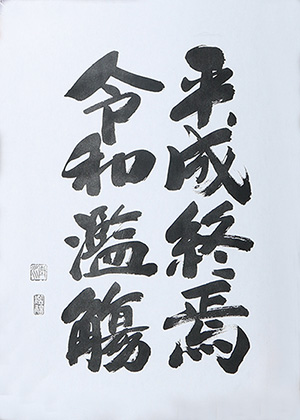 平成終焉
令和濫觴